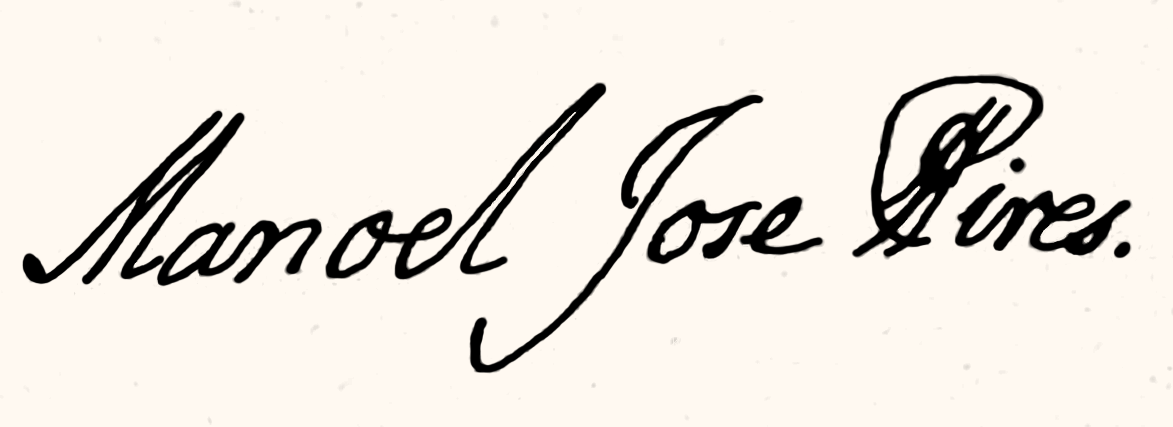 Manoel Jose Pires.